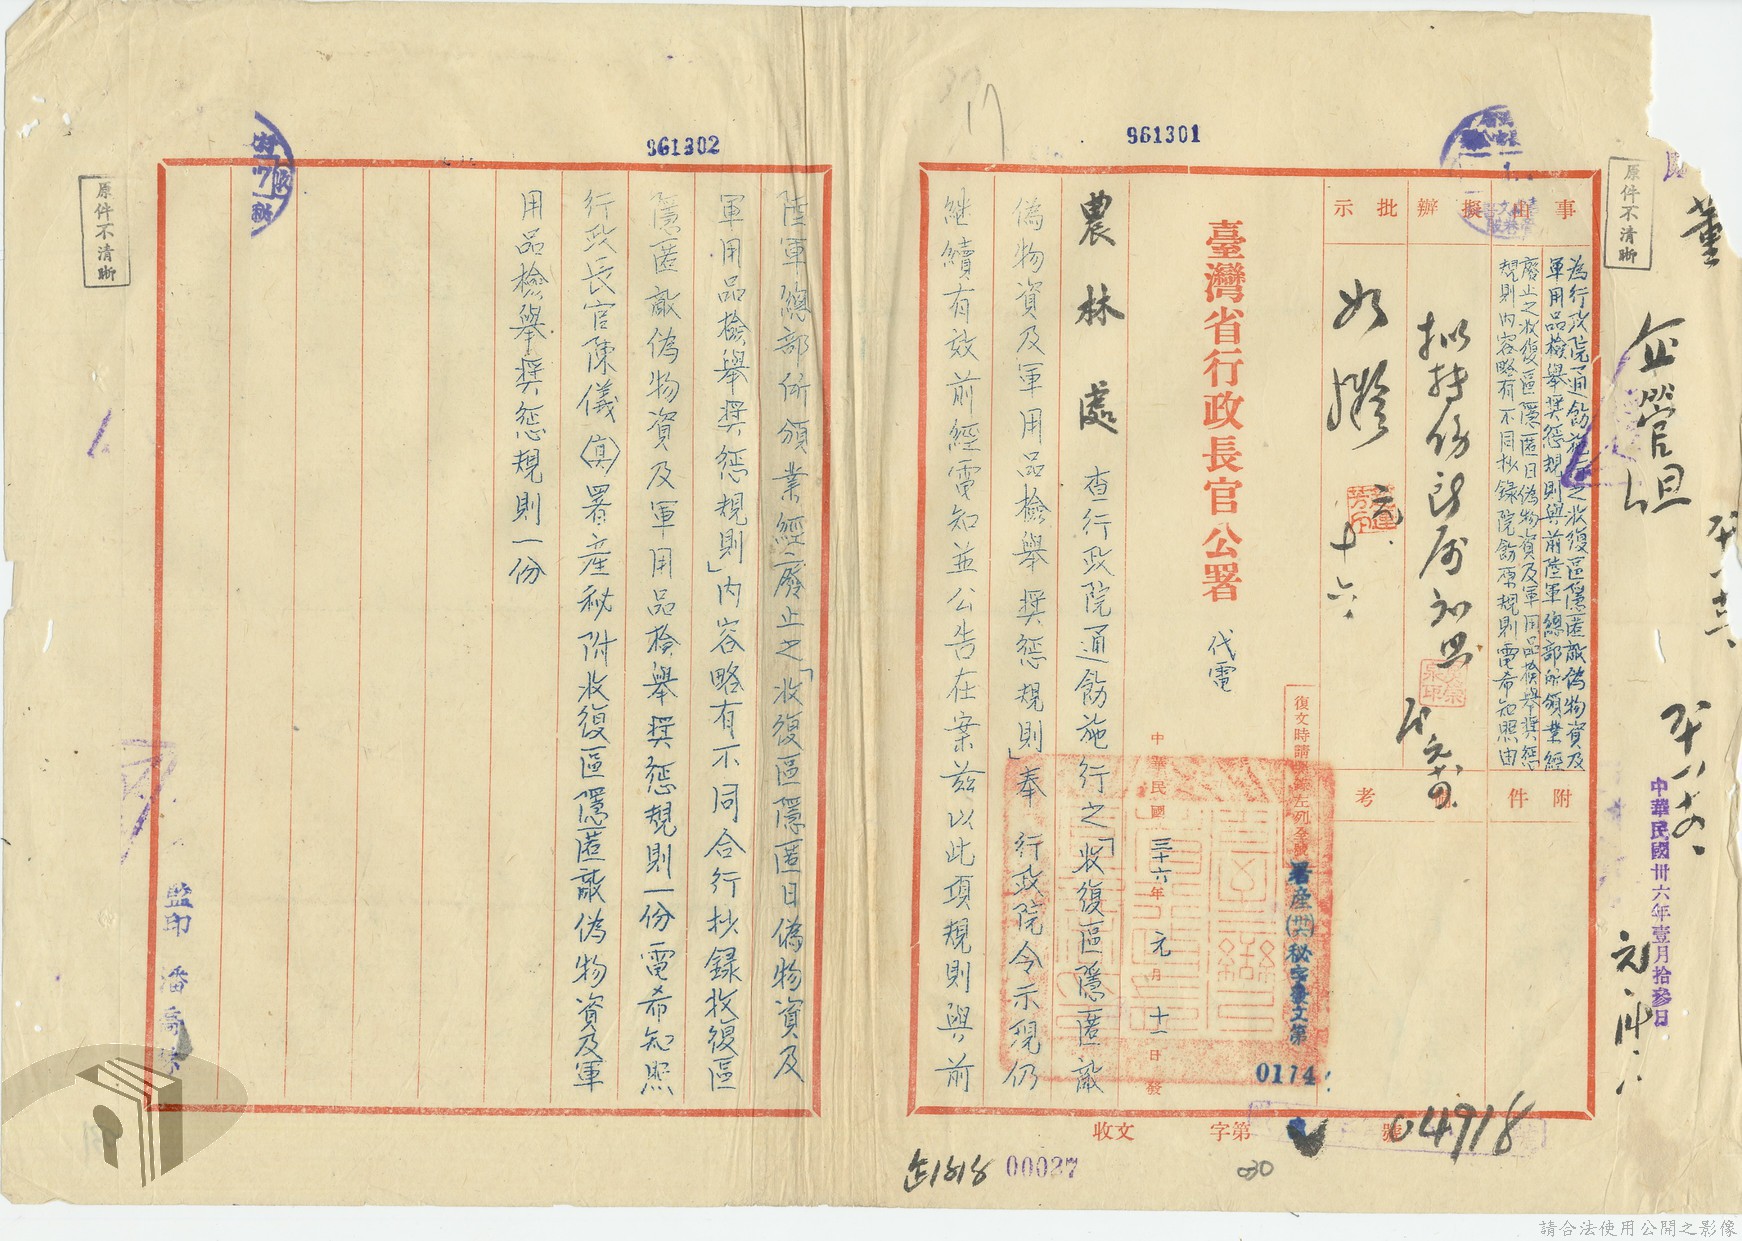 961301
961302
原件不清晰
原件不清晰
企管組
中華民國卅六年壹月拾參日
事由
擬辦
批示
為行政院通飭施行之收復區隱匿敵偽物資及
軍用品檢舉獎懲規則與前陸軍總部所頒業經
廢止之收復區隱匿日偽物資及軍用品檢舉獎懲
規則內容略有不同抄錄院飭原規則電希知照由
附件
備考
如擬
元、十六、
臺灣省行政長官公署
代電
中華民國三十六年元月十一日發
署產(卅六)秘字發文第
0174
農林處 查行政院通飭施行之「收復區隱匿敵
偽物資及軍用品檢舉獎懲規則」奉 行政院令示現仍
繼續有效前經電知並公告在案茲以此項規則與前
陸軍總部所頒業經廢止之「收復區隱匿日偽物資及
軍用品檢舉獎懲規則」內容略有不同合行抄錄收復區
隱匿敵偽物資及軍用品檢舉獎懲規則一份電希知照
行政長官陳儀(真)署產秘附收復區隱匿敵偽物資及軍
用品檢舉獎懲規則一份
收文
字第
號
04918
00027
030
監印 潘
請合法使用公開之影像